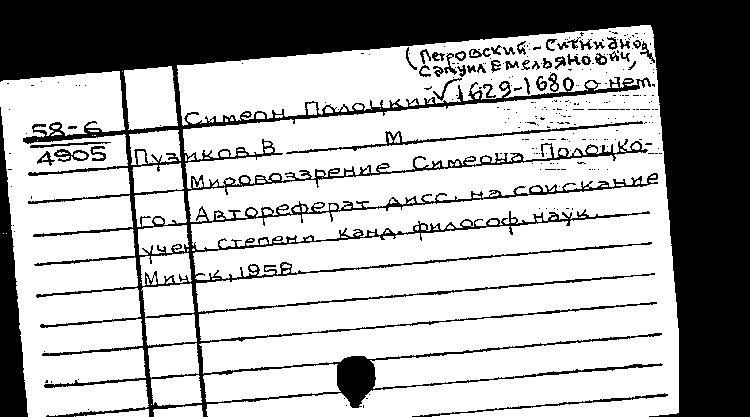 (Петровский-Ситнианович,
Самуил Емельянович,
Симеон, Полоцкий, 1629-1680 о нем.
58-6
4905
Пузиков, В М
Мировоззрение Симеона Полоцко-
го. Автореферат дисс. на соискание
учен. степени канд. философ. наук.
Минск, 1958.